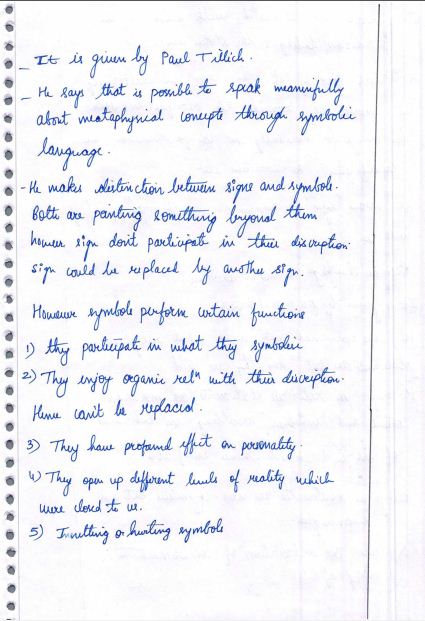 - It is given by Paul Tillich.
- He says that is possible to speak meaninfully
about metaphysical concepts through symbolic
language.
- He makes distinction between signs and symbols.
Both are pointing something beyond them
however sign don't participate in their discription
sign could be replaced by another sign.
However symbols perform certain functions
1) they participate in what they symbolic
2) They enjoy organic relⁿ with their discription.
Hence can't be replaced.
3) They have profound effect on personality.
4) They open up different levels of reality which
were closed to us.
5) or hurting symbols